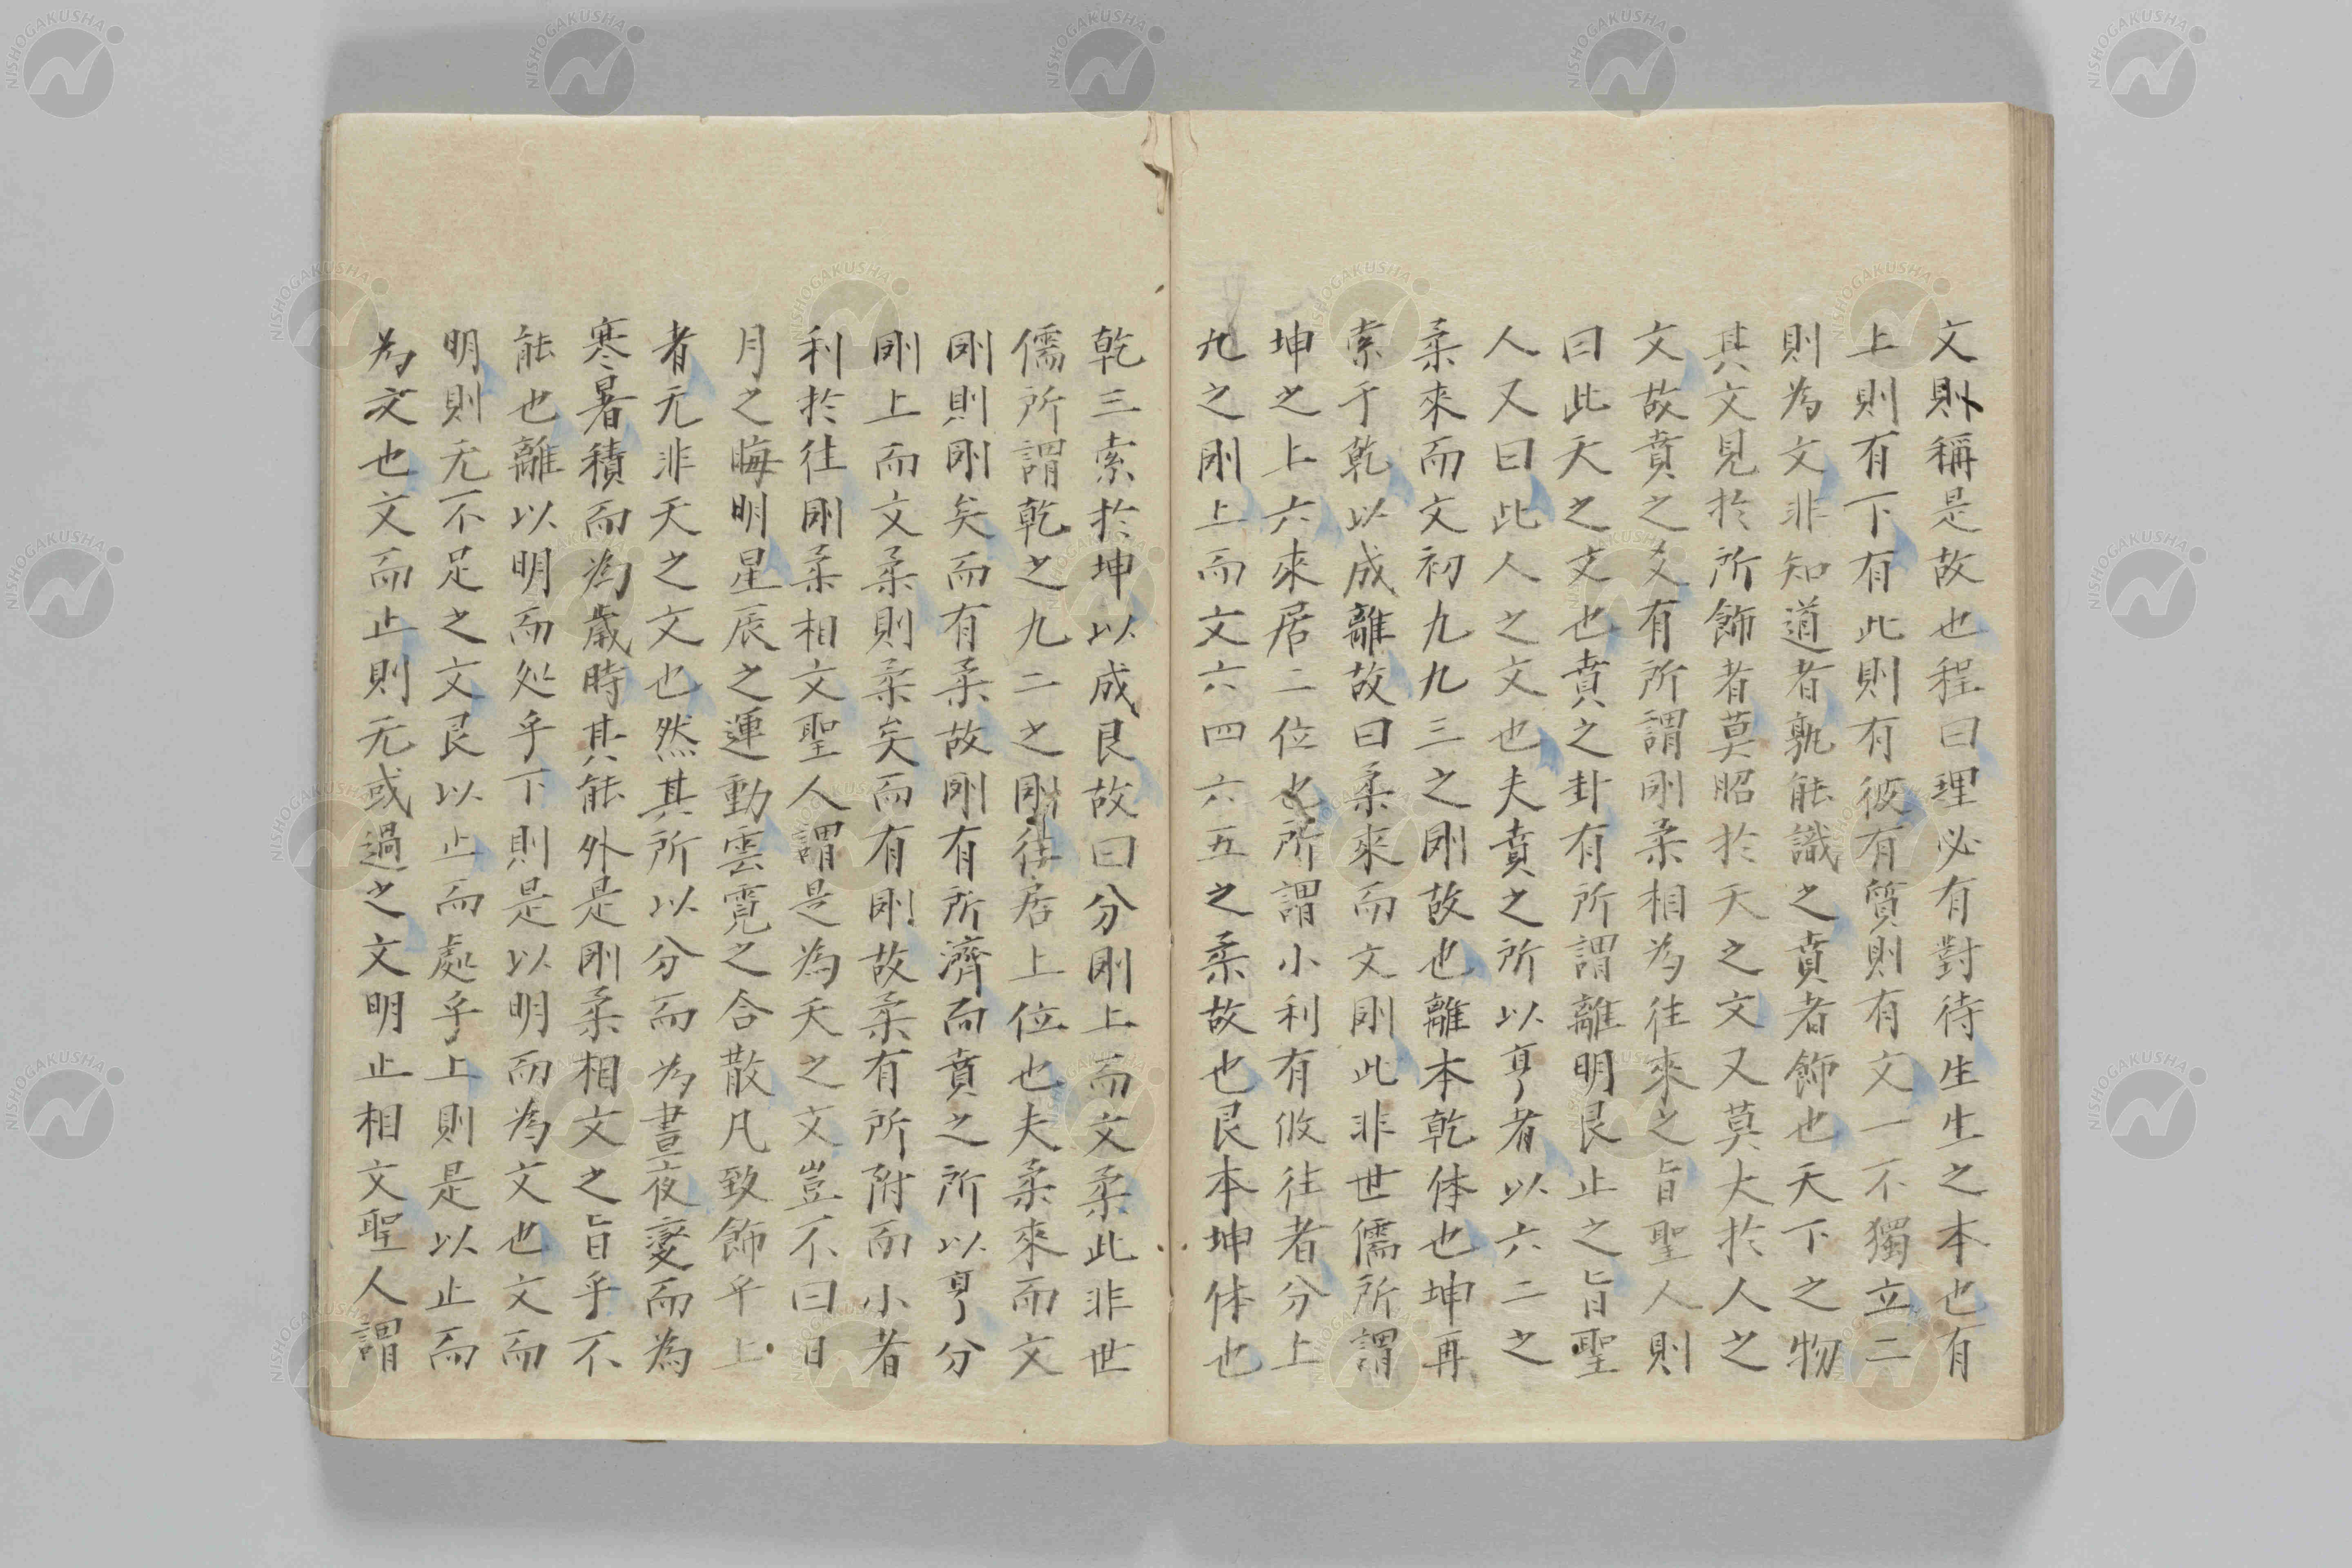 文則稱是故也程曰理必有對待生生之本也有
上則有下有此則有彼有質則有文一不獨立二
則為文非知道者孰能識之賁者飾也天下之物
其文見於所飾者莫昭於天之文又莫大於人之
文故賁之爻有所謂剛柔相為往來之旨聖人則
曰此天之文也賁之卦有所謂離明艮止之旨聖
人又曰此人之文也夫賁之所以亨者以六二之
柔來而文初九九三之剛故也離本乾体也坤再
索于乾以成離故曰柔來而文剛此非世儒所謂
坤之上六來居二位也所謂小利有攸往者分上
九之剛上而文六四六五之柔故也艮本坤体也
乾三索於坤以成艮故曰分剛上而文柔此非世
儒所謂乾之九二之剛往居上位也夫柔來而文
剛則剛矣而有柔故剛有所濟而賁之所以亨分
剛上而文柔則柔矣而有剛故柔有所附而小者
利於往剛柔相文聖人謂是為天之文豈不曰日
月之晦明星辰之運動雲霓之合散凡致飾乎上
者无非天之文也然其所以分而為晝夜變而為
寒暑積而為歲時其能外是剛柔相文之旨乎不
能也離以明而处乎下則是以明而為文也文而
明則无不足之文艮以止而處乎上則是以止而
為文也文而止則无或過之文明止相文聖人謂
NISHOGAKUSHA